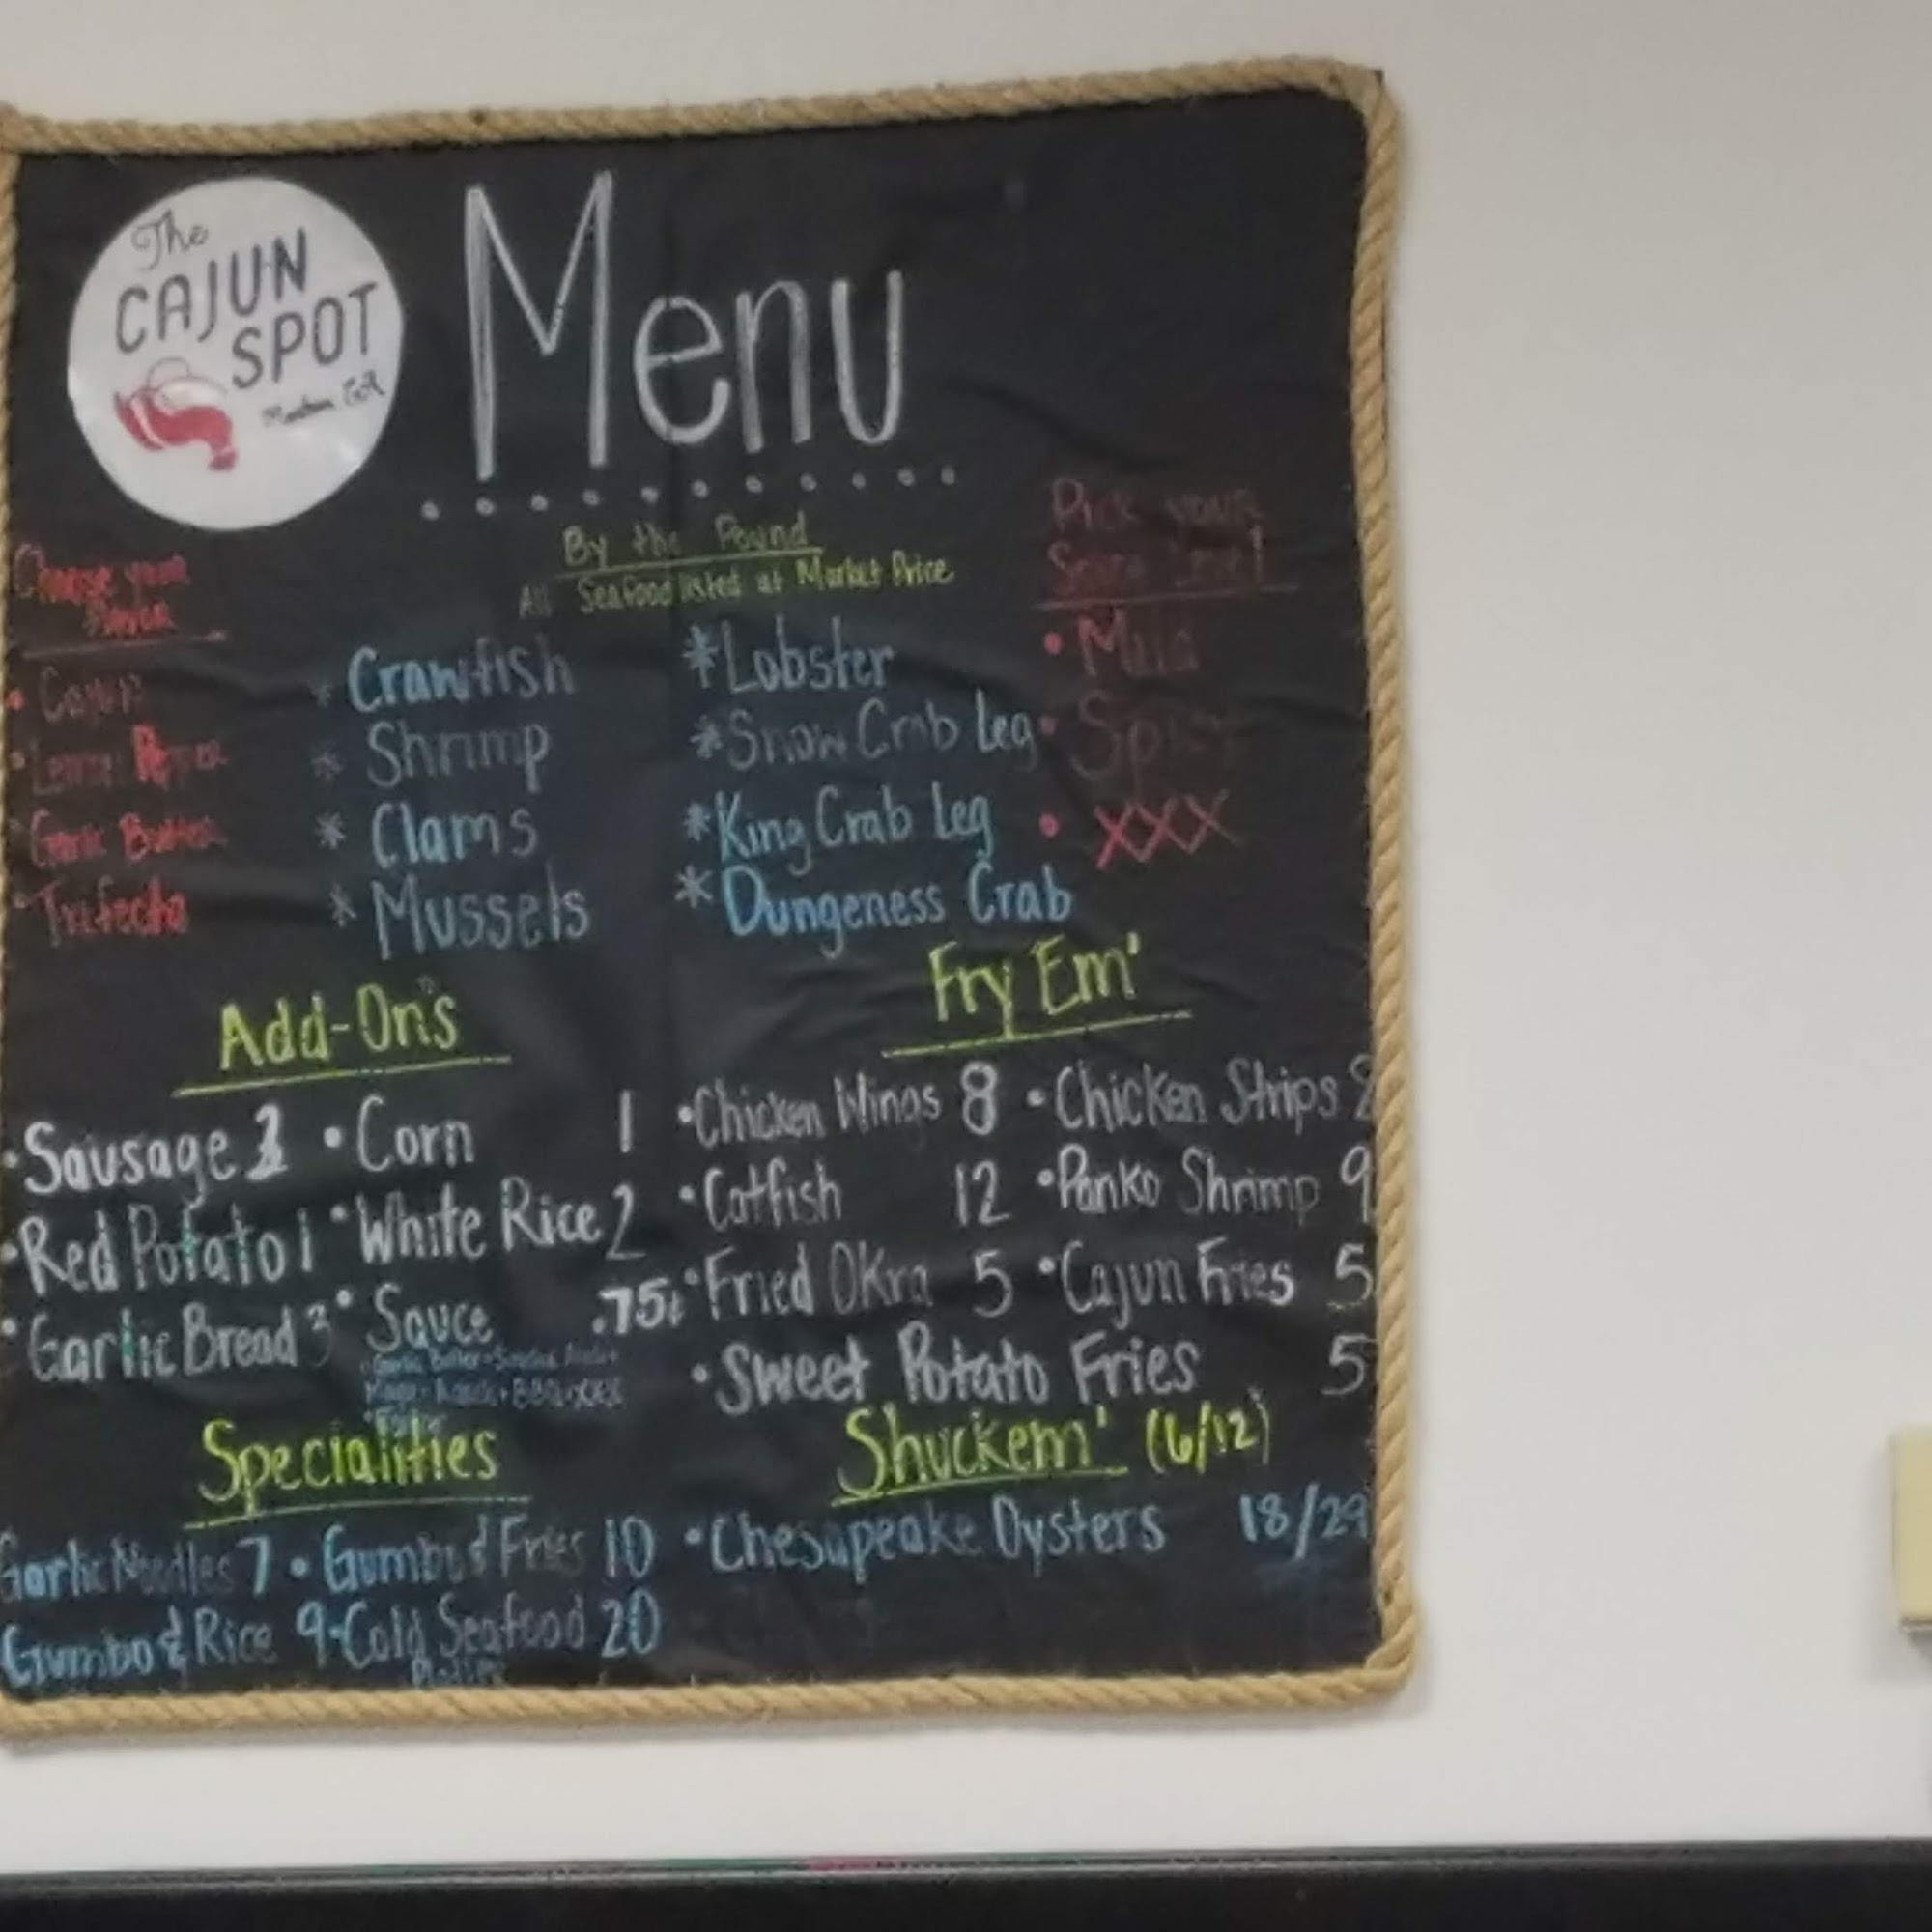 The
CAJUN
SPOT
Menu
By the Pound
All Seafood listed at Market Price
Choose your
Flavor
• Cajun
• Lemon Pepper
Garlic Butter
• Trifecta
* Crawfish
* Shrimp
* Clams
* Mussels
*Lobster
*Snow Crab Leg
*King Crab Leg
*Dungeness Crab
Pick your
• Mild
• Spicy
• XXX
Add-On's
•Sausage
•Corn 1
•Red Potato 1
•White Rice 2
•Garlic Bread 3
•Sauce .75¢
Fry Em'
•Chicken Wings 8 •Chicken Strips 8
•Catfish 12 •Panko Shrimp 9
•Fried Okra 5 •Cajun Fries 5
•Sweet Potato Fries 5
Specialities
Garlic Noodles 7 • Gumbo & Fries 10
Gumbo & Rice 9 •Cold Seafood 20
Shuckem' (6/12)
•Chesapeake Oysters 18/29